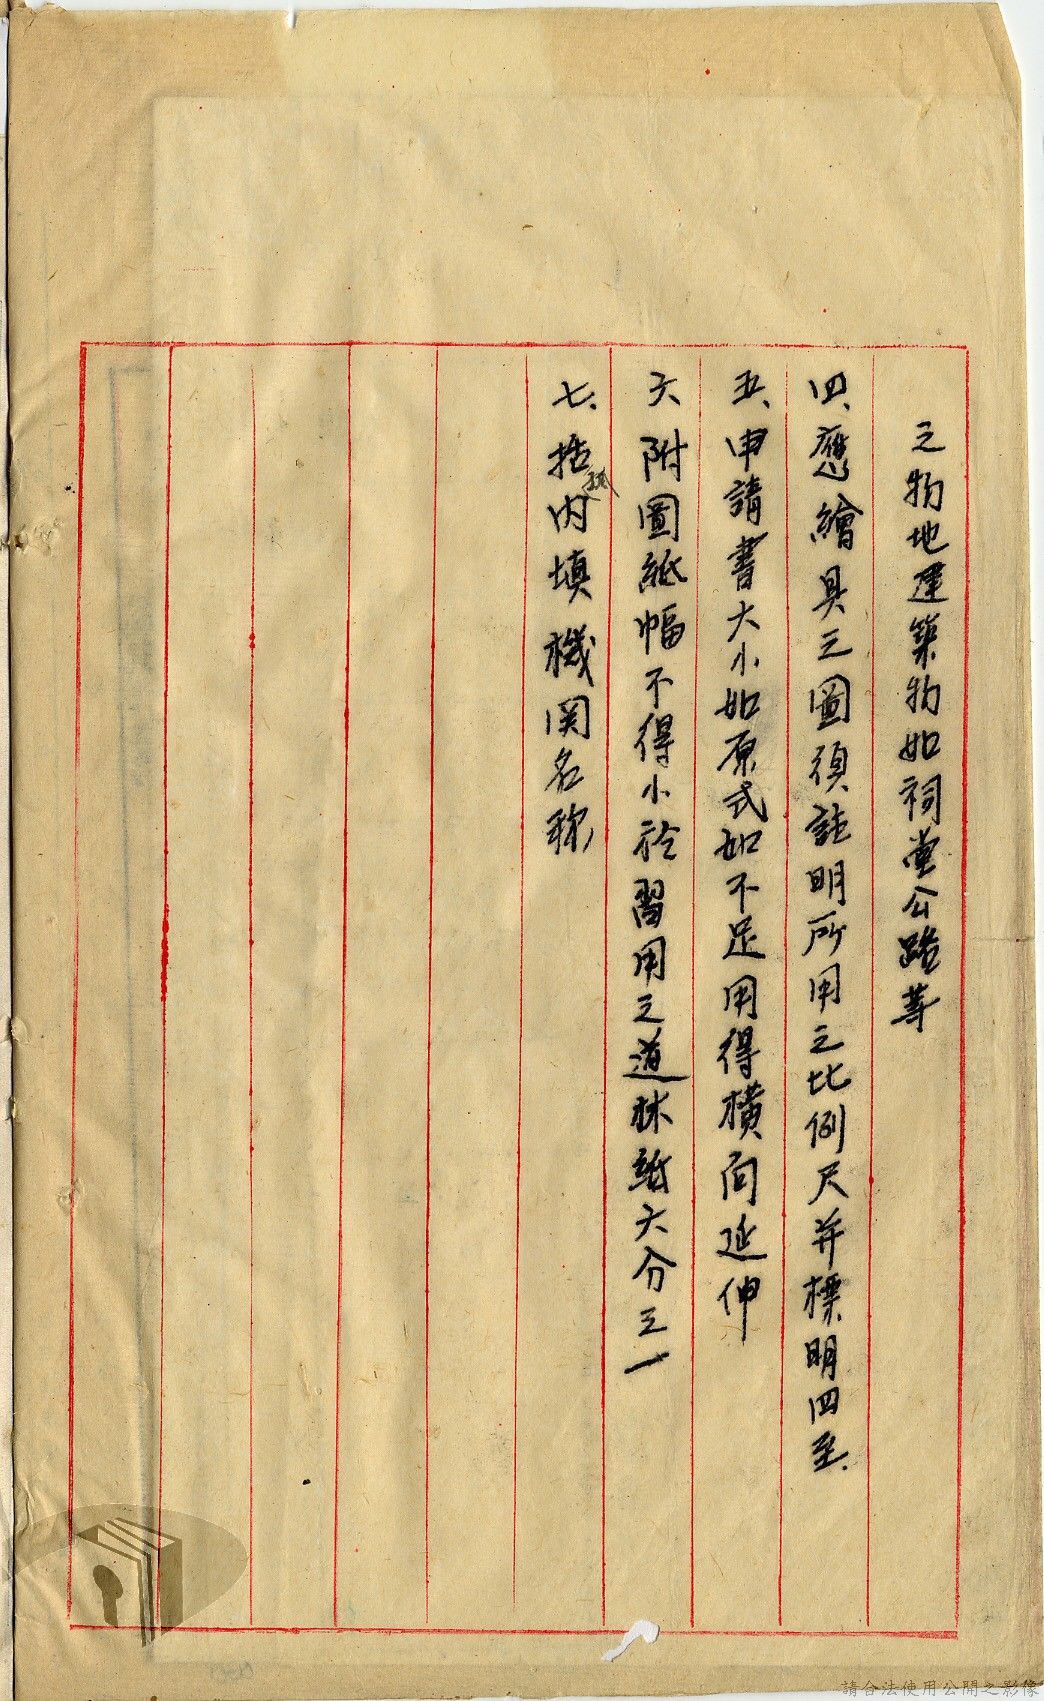 之物地建築物如祠堂公路等
四、應繪具之圖須註明所用之比例尺并標明四至.
五、申請書大小如原式如不足用得橫向延伸
六、附圖紙幅不得小於習用之道林紙六分之一
七.括弧內填機関名称
請合法使用公開之影像